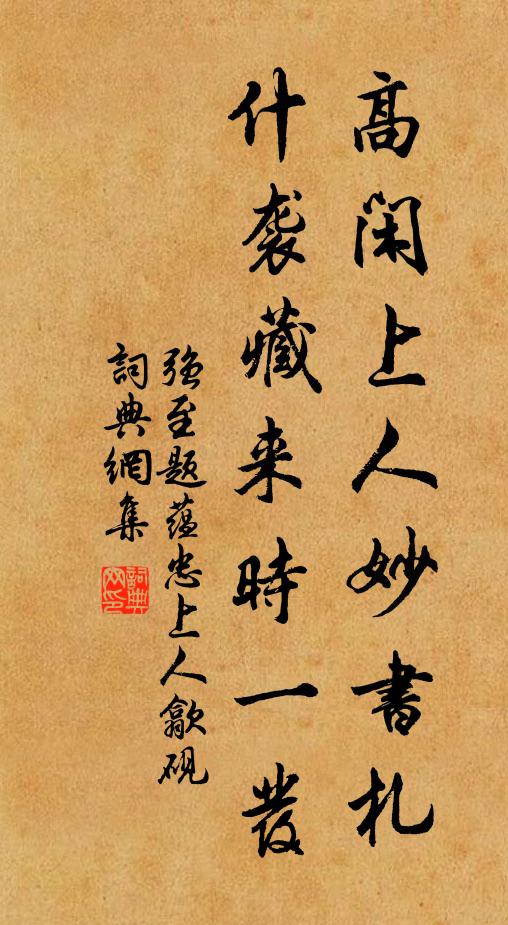 高閑上人妙書札
什袭藏来時一發
强至题蕴忠上人歙砚
詞典網集
詞典网印